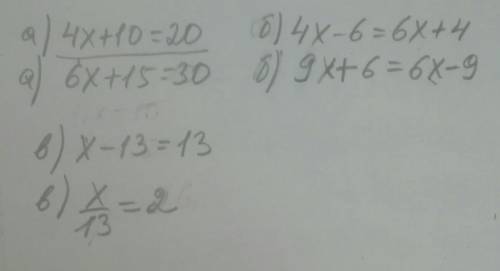 а) 4x+10=20
а) 6x+15=30
б) 4x-6=6x+4
б) 9x+6=6x-9
в) x-13=13
в) x/13=2